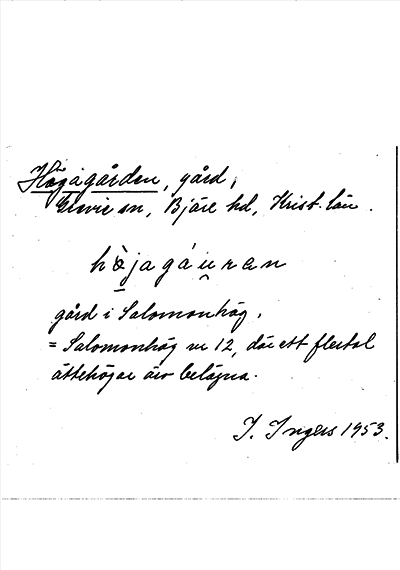 Högagården, gård,
Grevie sn, Bjäre hd, Krist. län.
hö̀jagáu̯ran
gård i Salomonhög.
= Salomonhög nr 12, där ett flertal
ättehögar äro belägna.
I. Ingers 1953.